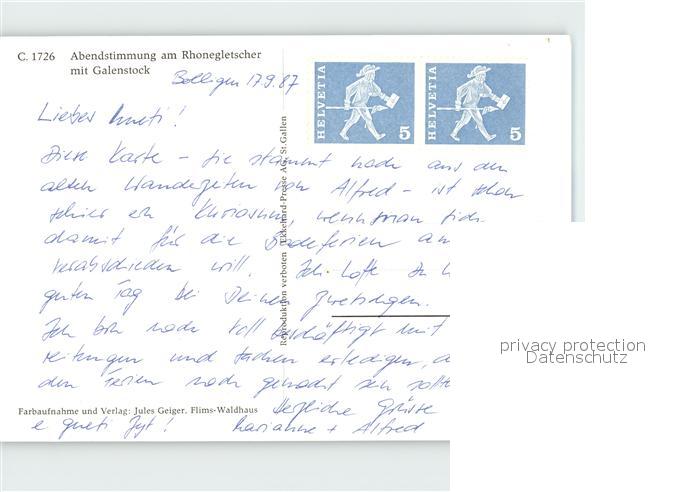 C. 1726 Abendstimmung am Rhonegletscher
mit Galenstock
Bolligen 17.9.87
HELVETIA 5
HELVETIA 5
Lieber Mueti!
Diese Karte – sie stammt noch aus den
alten Wanderzeiten von Alfred – ist schon
schier ein Kuriosum, wenn man sich
damit für die Badeferien
verabschieden will. Ich hoffe Du
guten Tag bei Deinen
Ich bin noch voll beschäftigt mit
und Sachen erledigen,
den Ferien noch gemacht sein sollte
Herzliche Grüsse
e gueti Zyt! Marianne + Alfred
Reproduktion verboten Ekkehard-Presse AG, St. Gallen
Farbaufnahme und Verlag: Jules Geiger, Flims-Waldhaus
privacy protection
Datenschutz